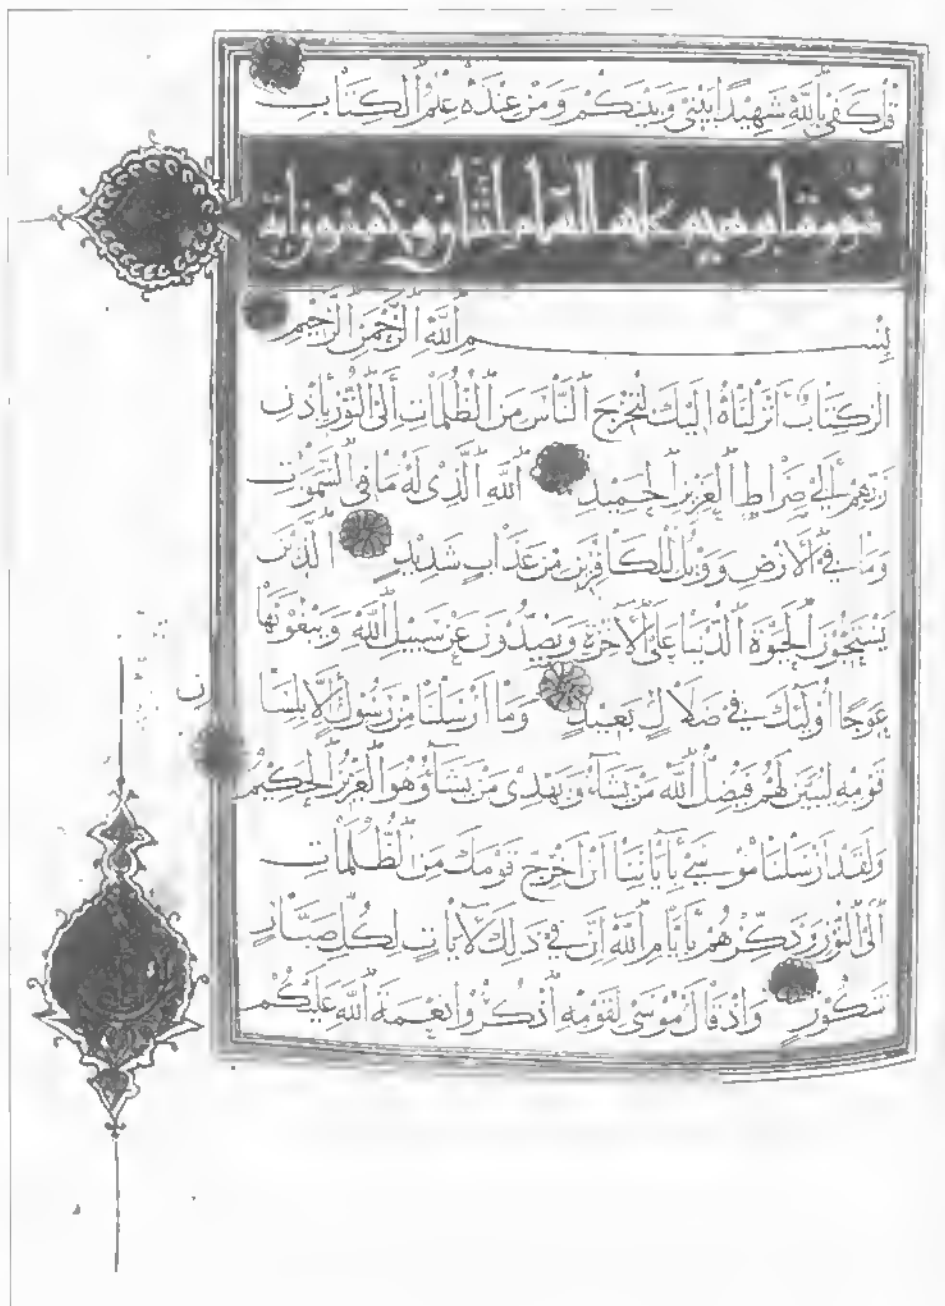 قُلْ كَفَىٰ بِاللَّهِ شَهِيدًا بَيْنِي وَبَيْنَكُمْ وَمَنْ عِنْدَهُ عِلْمُ الْكِتَابِ
سورة ابرهيم عليه السلام اثنان وخمسون آية
بِسْمِ اللَّهِ الرَّحْمَنِ الرَّحِيمِ
الر كِتَابٌ أَنْزَلْنَاهُ إِلَيْكَ لِتُخْرِجَ النَّاسَ مِنَ الظُّلُمَاتِ إِلَى النُّورِ بِإِذْنِ
رَبِّهِمْ إِلَىٰ صِرَاطِ الْعَزِيزِ الْحَمِيدِ اللَّهِ الَّذِي لَهُ مَا فِي السَّمَوَاتِ
وَمَا فِي الْأَرْضِ وَوَيْلٌ لِلْكَافِرِينَ مِنْ عَذَابٍ شَدِيدٍ الَّذِينَ
يَسْتَحِبُّونَ الْحَيَوةَ الدُّنْيَا عَلَى الْآخِرَةِ وَيَصُدُّونَ عَنْ سَبِيلِ اللَّهِ وَيَبْغُونَهَا
عِوَجًا أُولَٰئِكَ فِي ضَلَالٍ بَعِيدٍ وَمَا أَرْسَلْنَا مِنْ رَسُولٍ إِلَّا بِلِسَا
نِ
قَوْمِهِ لِيُبَيِّنَ لَهُمْ فَيُضِلُّ اللَّهُ مَنْ يَشَاءُ وَيَهْدِي مَنْ يَشَاءُ وَهُوَ الْعَزِيزُ الْحَكِيمُ
وَلَقَدْ أَرْسَلْنَا مُوسَىٰ بِآيَاتِنَا أَنْ أَخْرِجْ قَوْمَكَ مِنَ الظُّلُمَاتِ
إِلَى النُّورِ وَذَكِّرْهُمْ بِأَيَّامِ اللَّهِ إِنَّ فِي ذَلِكَ لَآيَاتٍ لِكُلِّ صَبَّارٍ
شَكُورٍ وَإِذْ قَالَ مُوسَىٰ لِقَوْمِهِ اذْكُرُوا نِعْمَةَ اللَّهِ عَلَيْكُمْ